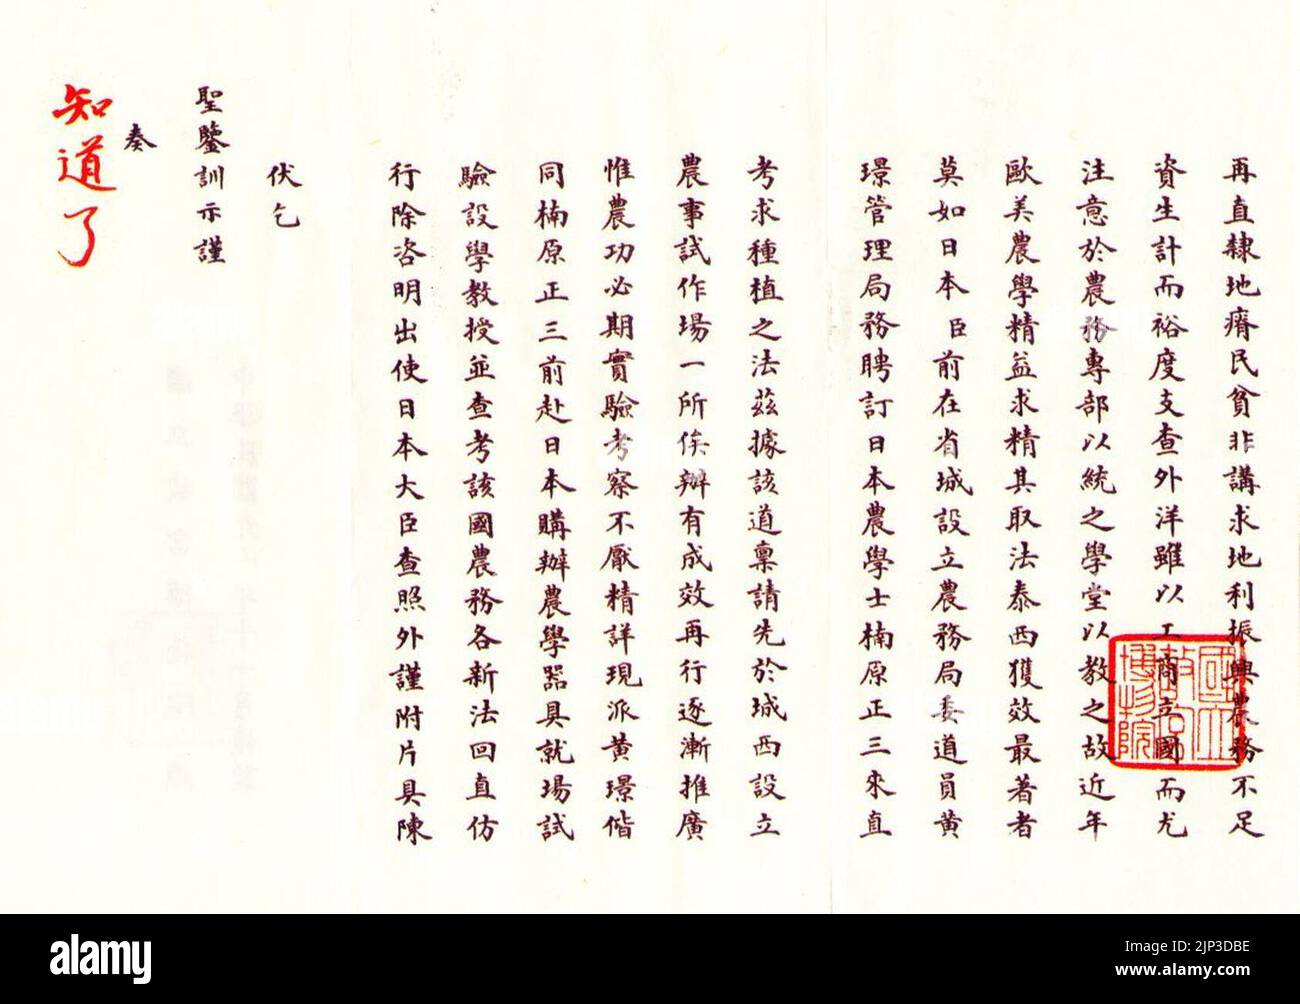 再直隸地瘠民貧非講求地利振興農務不足
資生計而裕度支查外洋雖以工商立國而尤
注意於農務專部以統之學堂以教之故近年
歐美農學精益求精其取法泰西獲效最著者
莫如日本臣前在省城設立農務局委道員黃
璟管理局務聘訂日本農學士楠原正三來直
考求種植之法茲據該道稟請先於城西設立
農事試作場一所俟辦有成效再行逐漸推廣
惟農功必期實驗考察不厭精詳現派黃璟偕
同楠原正三前赴日本購辦農學器具就場試
驗設學教授並查考該國農務各新法回直仿
行除咨明出使日本大臣查照外謹附片具陳
伏乞
聖鑒訓示謹
奏
知道了
國立
故宮
博物院
alamy
Image ID: 2JP3DBE
www.alamy.com